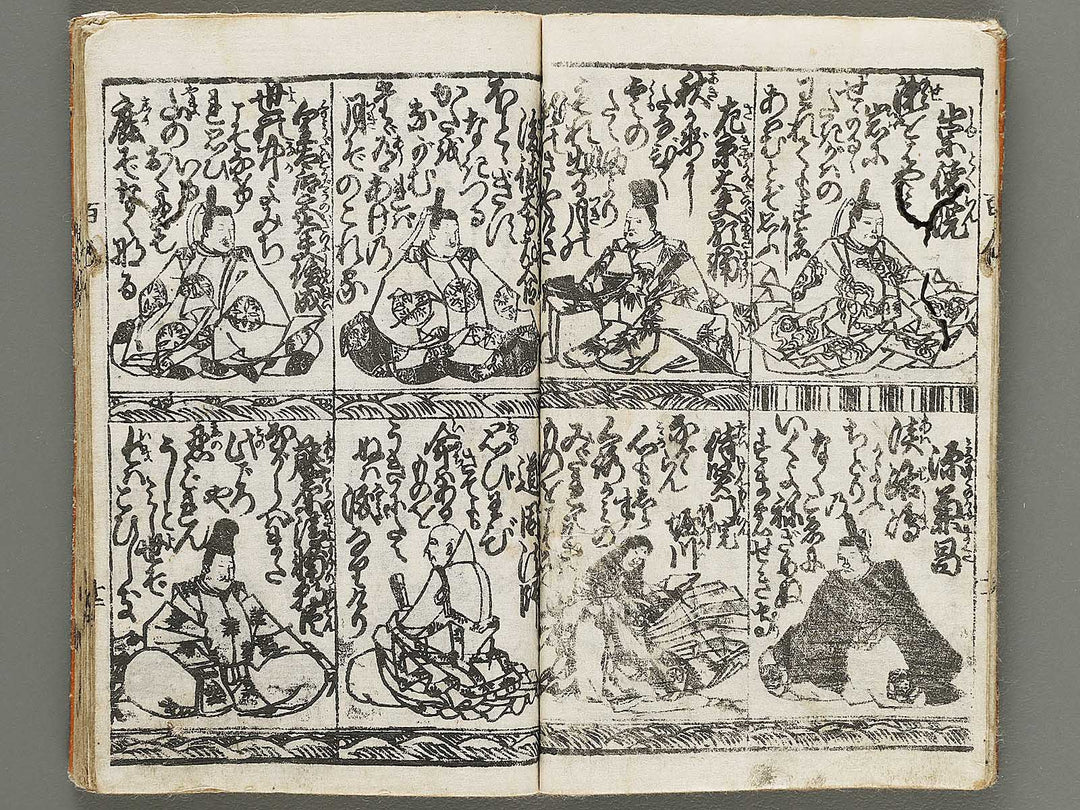 崇徳院
瀬をはやみ
岩に
せかるゝ
たき川の
われてもすゑに
あはむとぞおもふ
左京大夫顕輔
秋かぜに
たなびく
雲の
たえ
間より
もれ出る月の
後徳大寺左大臣
ほとゝぎす
なきつる
かたを
ながむ
れば
たゞありあけの
月ぞのこれる
皇太后宮大夫俊成
世の中よみち
こそなけれ
おもひ入
山のおくにも
鹿ぞなくなる
源兼昌
淡路島
かよふ
ちどりの
なくこゑに
いくよねざめぬ
すまのせきもり
待賢門院
堀川
ながからん
心もしらず
黒かみの
みだれてけさは
ものをこそ
道因法師
おもひわび
さても
命は
あるものを
うきにたへ
ぬは涙なりけり
藤原清輔朝臣
ながらへばまた
このごろや
しのばれん
うしと見し世ぞ
今はこひしき
百